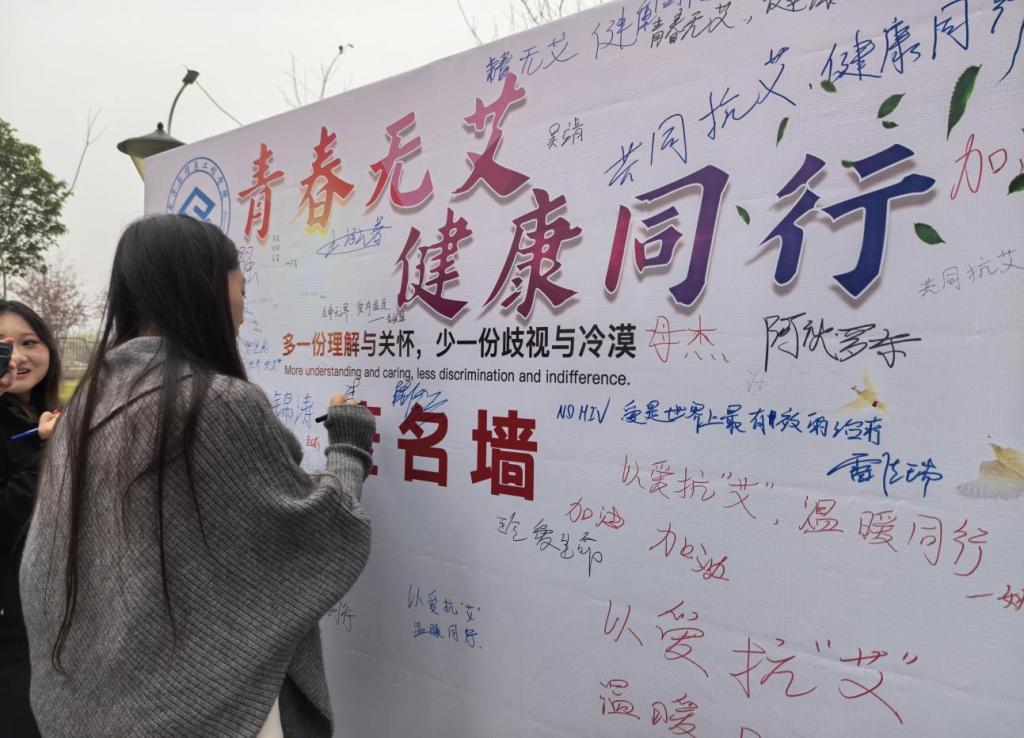 青无艾 健康同行
青春无艾,健康
共同抗艾,健康同行
青春无艾
吴清
加油
健康同行
共同抗艾
多一份理解与关怀,少一份歧视与冷漠
More understanding and caring, less discrimination and indifference.
母杰
锦涛
名墙
NO HIV 爱是世界上最有效的治疗
以爱抗"艾",温暖同行
加油
珍爱生命
加油
以爱抗"艾"
温暖同行.
同行
以爱抗"艾"
温暖